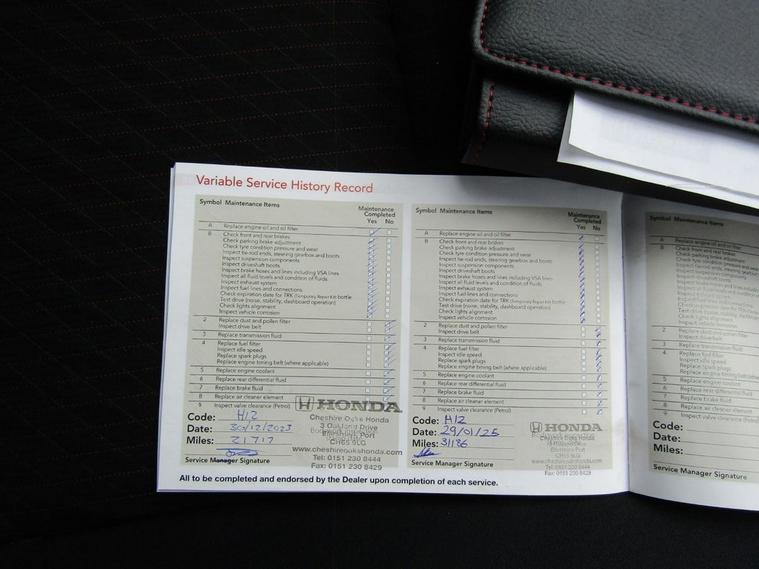 Variable Service History Record
Symbol Maintenance Items
Maintenance
Completed
Yes No
A Replace engine oil and oil filter
B Check front and rear brakes
Check parking brake adjustment
Check tyre condition pressure and wear
Inspect tie-rod ends, steering gearbox and boots
Inspect suspension components
Inspect driveshaft boots
Inspect brake hoses and lines including VSA lines
Inspect all fluid levels and condition of fluids
Inspect exhaust system
Inspect fuel lines and connections
Check expiration date for TRK (Temporary Repair Kit) bottle
Test drive (noise, stability, dashboard operation)
Check lights alignment
Inspect vehicle corrosion
2 Replace dust and pollen filter
Inspect drive belt
3 Replace transmission fluid
4 Replace fuel filter
Inspect idle speed
Replace spark plugs
Replace engine timing belt (where applicable)
5 Replace engine coolant
6 Replace rear differential fluid
7 Replace brake fluid
8 Replace air cleaner element
9 Inspect valve clearance (Petrol)
HONDA
Code: H12
Date: 30/12/2023
Miles: 21717
Cheshire Oaks Honda
3 Oakland Drive
Port
CH65 9LG
www.cheshireoakshonda.com
Tel: 0151 230 8444
Fax: 0151 230 8429
Service Manager Signature
Symbol Maintenance Items
Maintenance
Completed
Yes No
A Replace engine oil and oil filter
B Check front and rear brakes
Check parking brake adjustment
Check tyre condition pressure and wear
Inspect tie-rod ends, steering gearbox and boots
Inspect suspension components
Inspect driveshaft boots
Inspect brake hoses and lines including VSA lines
Inspect all fluid levels and condition of fluids
Inspect exhaust system
Inspect fuel lines and connections
Check expiration date for TRK (Temporary Repair Kit) bottle
Test drive (noise, stability, dashboard operation)
Check lights alignment
Inspect vehicle corrosion
2 Replace dust and pollen filter
Inspect drive belt
3 Replace transmission fluid
4 Replace fuel filter
Inspect idle speed
Replace spark plugs
Replace engine timing belt (where applicable)
5 Replace engine coolant
6 Replace rear differential fluid
7 Replace brake fluid
8 Replace air cleaner element
9 Inspect valve clearance (Petrol)
Code: H12
Date: 29/01/25
Miles: 31136
HONDA
Cheshire Oaks Honda
Ellesmere Port
CH65 9LG
Tel: 0151 230 8444
Fax: 0151 230 8429
Service Manager Signature
All to be completed and endorsed by the Dealer upon completion of each service.
Symbol Maintenance Items
A Replace engine oil and oil filter
B Check front and rear brakes
Check parking brake
Check tyre condition
Inspect tie-rod ends, steering
Inspect suspension components
Inspect driveshaft boots
Inspect brake hoses and lines
Inspect all fluid levels and
Inspect exhaust system
Inspect fuel lines and
Check expiration date
Test drive
Check lights
Inspect vehicle corrosion
2 Replace dust and pollen filter
Inspect drive belt
3 Replace transmission fluid
4 Replace fuel filter
Inspect idle speed
Replace spark plugs
Replace engine timing belt
5 Replace engine coolant
6 Replace rear differential fluid
7 Replace brake fluid
8 Replace air cleaner element
9 Inspect valve clearance (Petrol)
Code:
Date:
Miles:
Service Manager Signature